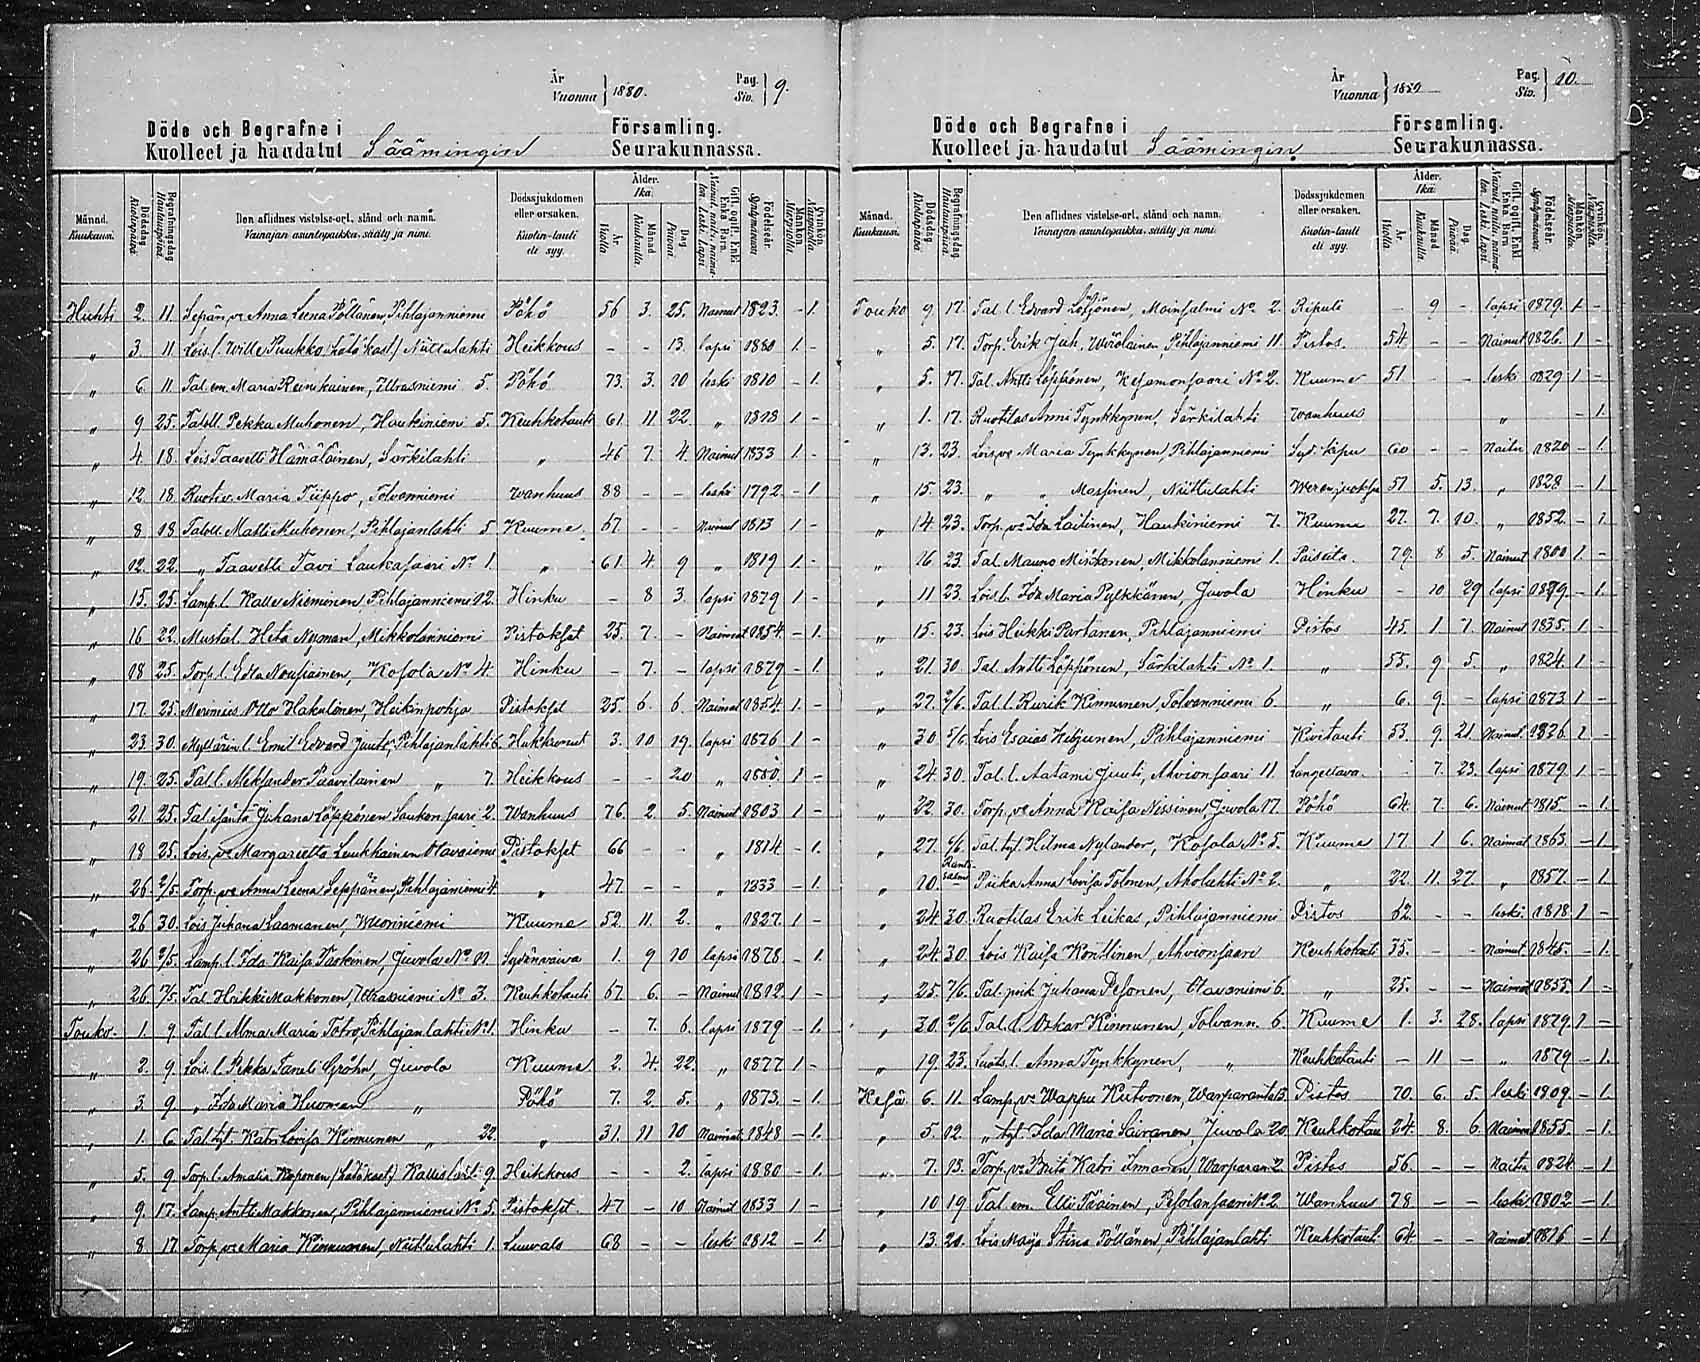 År
Vuonna } 1880.
Pag.
Siv. } 9.
Döde och Begrafne i
Kuolleet ja haudatut Säämingin
Församling.
Seurakunnassa.
Månad. Kuukausi.
Dödsdag Kuolinpäivä
Begrafningsdag Hautauspäivä.
Den aflidnes vistelse-ort, stånd och namn. Vainajan asuntopaikka, sääty ja nimi.
Dödssjukdomen eller orsaken. Kuolin-tauti eli syy.
Ålder. Ikä.
År Vuotta
Månad Kuukautta.
Dag. Päivää.
Gift, ogift, Enkl. Enka Barn. Nainut, naita, naimaton, Leski, Lapsi
Födelseår. Syntymävuosi.
Mankön. Miespuolta.
Qvinkön. Naispuolta.
Huhti 2. 11 Sepän v:o Anna Leena Pöllänen, Pihlajanniemi Pöhö 56 3. 25. Nainut 1823. - 1.
„ 3. 11 Lois. l. Wille Puukko (hätä kast.) Niittulahti Heikkous - - 13. lapsi 1880 1. -
„ 6. 11 Tal. em. Maria Reinikainen, Utrasniemi 5. Pöhö 73. 3. 20 leski 1810 - 1.
„ 9 25. Taloll. Pekka Muhonen, Haukiniemi 5. Keuhkotauti 61 11 22. „ 1818 1 -
„ 4. 18. Lois Taavetti Hämäläinen, Särkilahti „ 46 7 4. Nainut 1833 1. -
„ 12. 18. Ruotiv. Maria Tiippo, Tolvanniemi Wanhuus 88 - - leski 1792. - 1
„ 8 18 Taloll. Matti Muhonen, Pihlajanlahti 5 Kuume 67. - - Nainut 1813 1. -
„ 12. 22. „ Taavetti Tavi Laukasaari No 1. „ 61. 4. 9 „ 1819 1. -
„ 15. 25. Lamp. l. Kalle Nieminen, Pihlajanniemi 12. Hinku - 8 3. lapsi 1879 1 -
„ 16 22. Mustal. Heta Nyman, Mikkolanniemi Pistokset 25. 7. - Nainut 1854. - 1.
„ 18 25. Torp. l. Edla Nousiainen, Kosola No 4. Hinku - 7. - lapsi 1879 - 1.
„ 17. 25. Merimies Otto Hakulonen, Heikinpohja Pistokset 25. 6. 6. Nainut 1854. 1. -
„ 23. 30. Myllärin l. Emil Edvard Juuti, Pihlajanlahti 6. Hukkunut 3. 10 19. lapsi 1876 1 -
„ 19. 25. Tal. l. Aleksander Paavilainen „ 7. Heikkous - - 20 „ 1880. 1 -
„ 21 25. Tal. isäntä Juhana Löppönen Laukansaari 2. Wanhuus 76. 2. 5. Nainut 1803 1 -
„ 18 25. Lois. v:o Margareetta Luukkainen Otavaniemi Pistokset 66 - - „ 1814 - 1.
„ 26 2/5. Torp. v:o Anna Leena Seppänen, Pihlajaniemi 4. „ 47. - - „ 1833 - 1.
„ 26 30. Lois Juhana Laamanen, Wuoriniemi Kuume 52. 11. 2. „ 1827. 1 -
„ 26 2/5. Lamp. l. Ida Kaisa Taskinen, Juvola No 11. Sydänvaiva 1. 9 10 lapsi 1878 - 1.
„ 26. 7/5. Tal. Heikki Makkonen, Utrasniemi No 3. Keuhkotauti 67 6. - Nainut 1812 1 -
Touko. 1. 9 Tal. l. Alma Maria Totro, Pihlajanlahti No 1. Hinku - 7. 6. lapsi 1879 - 1.
„ 2. 9. Lois. l. Pekka Taneli Gröhn, Juvola Kuume. 2. 4. 22. „ 1877 1 -
„ 3. 9. „ Ida Maria Huoman „ Pöhö 7. 2. 5. „ 1873. - 1.
„ 1. 6 Tal. tyt. Katri Lovisa Kinnunen „ 22. „ 31. 11 10 Naimat. 1848 - 1.
„ 5. 9 Torp. l. Amalia Koponen (hätäkast.) Kallislahti 9. Heikkous - - 2. lapsi 1880 - 1.
„ 9. 17. Lamp. Antti Makkonen, Pihlajanniemi No 5. Pistokset 47 - 10 Nainut 1833 1 -
„ 8 17. Torp. v:o Maria Kinnunen, Niittulahti 1. Luuvalo 68 - - leski 1812 - 1.
År
Vuonna } 1880
Pag.
Siv. } 10.
Döde och Begrafne i
Kuolleet ja haudatut Säämingin.
Församling.
Seurakunnassa.
Månad. Kuukausi.
Dödsdag Kuolinpäivä
Begrafningsdag Hautauspäivä.
Den aflidnes vistelse-ort, stånd och namn. Vainajan asuntopaikka, sääty ja nimi.
Dödssjukdomen eller orsaken. Kuolin-tauti eli syy.
Ålder. Ikä.
År Vuotta.
Månad Kuukautta.
Dag. Päivää.
Gift, ogift, Enkl. Enka Barn. Nainut, naita, naimaton, Leski, Lapsi
Födelseår. Syntymävuosi.
Mankön. Miespuolta.
Qvinkön. Naispuolta.
Touko 9. 17. Tal. l. Edvard Löppönen, Moinsalmi No 2. Ripuli - 9 - lapsi 1879. 1 -
„ 5. 17. Torp. Erik Juh. Wirolainen, Pihlajanniemi 11 Pistos. 54. - - Nainut 1826. 1 -
„ 5. 17. Tal. Antti Löppönen, Kesamonsaari No 2. Kuume 51 - - leski 1829 1 -
„ 1. 17. Ruotilas Anni Tynkkynen, Särkilahti Wanhuus „ - 1.
„ 13. 23. Lois. v:o Maria Tynkkynen, Pihlajanniemi Syd. kipu 60 - - Naitu 1820 - 1.
„ 15. 23. „ „ Massinen, Niittulahti Werenjuoksu 51 5. 13. „ 1828 - 1
„ 14. 23. Torp. v:o Ida Laitinen, Haukiniemi 7. Kuume 27. 7. 10. „ 1852. - 1.
„ 16 23. Tal. Mauno Miskonen, Mikkolanniemi 1. Paiseita. 79. 8 5. Nainut 1800 1. -
„ 11 23. Lois l. Ida Maria Pylkkänen, Juvola Hinku - 10 29 lapsi 1879 - 1.
„ 15. 23. Lois Heikki Partanen, Pihlajanniemi Pistos 45. 1 7. Nainut 1835. 1 -
„ 21. 30. Tal. Antti Löppönen, Särkilahti No 1. „ 55. 9 5. „ 1824. 1 -
„ 27. 2/6. Tal. l. Rurik Kinnunen, Tolvanniemi 6. „ 6. 9. - lapsi 1873. 1 -
„ 30 5/6. Lois Esaias Keijunen, Pihlajanniemi Kivitauti 53. 9 21. Nainut 1826. 1 -
„ 24. 30. Tal. l. Aatami Juuti, Ahvionsaari 11. Langettava. - 7. 23. lapsi 1879. 1 -
„ 22. 30. Torp. v:o Anna Kaisa Nissinen, Juvola 17. Pöhö 64. 7. 6. Nainut 1815. - 1.
„ 27. 6/6. Tal. tyt. Hilma Nylander, Kosola No 5. Kuume 17 1 6. Naimat. 1863. - 1.
„ 10. Rantasalmi Piika Anna Lovisa Tolonen, Aholahti No 2. „ 22. 11. 27. „ 1857. - 1.
„ 24. 30. Ruotilas Erik Leikas, Pihlajanniemi Pistos 62. - - leski. 1818. 1 -
„ 24. 30. Lois Kaisa Konttinen, Ahvionsaari Keuhkotauti 35. - - Nainut 1845. - 1.
„ 25. 7/6. Tal. poik Juhana Pesonen, Otavaniemi 6. „ 25. - - Naimat 1855. 1 -
„ 30. 2/6. Tal. l. Oskar Kinnunen, Tolvann. 6. Kuume 1. 3. 28. lapsi 1879. 1 -
„ 19. 23. Luots. l. Anna Tynkkynen, „ Keuhkotauti - 11 - „ 1879 - 1.
Kesä. 6. 11. Lamp. v:o Wappu Kiitvonen, Warparanta 5. Pistos 70. 6. 5. leski 1809. - 1.
„ 5. 12. „ tyt. Ida Maria Sairanen, Juvola 20. Keuhkotau 24. 8. 6. Naimat 1855. - 1.
„ 7. 13. Torp. v:o Brita Katri Immonen, Warparan. 2. Pistos 56. - - Naitu 1824. - 1
„ 10 19 Tal. em. Elli Toivinen, Pesolansaari No 2. Wanhuus 78 - - leski 1802 - 1.
„ 13. 20. Lois Maija Stina Pöllänen, Pihlajanlahti Keuhkotauti 64. - - Naimat 1816 - 1.